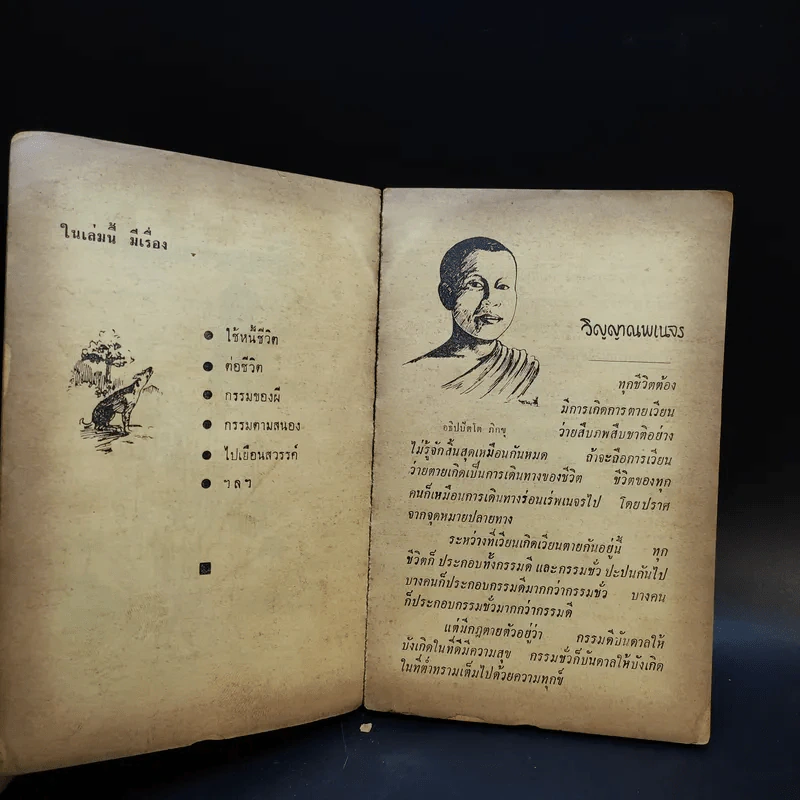 ในเล่มนี้ มีเรื่อง
● ใช้หนี้ชีวิต
● ต่อชีวิต
● กรรมของผี
● กรรมตามสนอง
● ไปเยือนสวรรค์
● ฯลฯ
วิญญาณพเนจร
อธิปปัตโต ภิกขุ
ทุกชีวิตต้อง
มีการเกิดการตายเวียน
ว่ายสืบภพสืบชาติอย่าง
ไม่รู้จักสิ้นสุดเหมือนกันหมด ถ้าจะถือการเวียน
ว่ายตายเกิดเป็นการเดินทางของชีวิต ชีวิตของทุก
คนก็เหมือนการเดินทางร่อนเร่พเนจรไป โดยปราศ
จากจุดหมายปลายทาง
ระหว่างที่เวียนเกิดเวียนตายกันอยู่นี้ ทุก
ชีวิตก็ ประกอบทั้งกรรมดี และกรรมชั่ว ปะปนกันไป
บางคนก็ประกอบกรรมดีมากกว่ากรรมชั่ว บางคน
ก็ประกอบกรรมชั่วมากกว่ากรรมดี
แต่มีกฎตายตัวอยู่ว่า กรรมดีบันดาลให้
บังเกิดในที่ดีมีความสุข กรรมชั่วก็บันดาลให้บังเกิด
ในที่ต่ำทรามเต็มไปด้วยความทุกข์